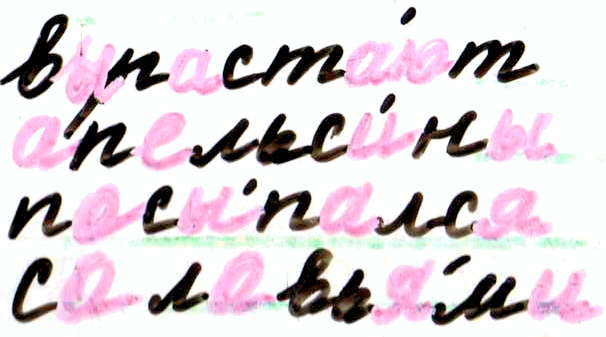 выраста́ют
апельси́ны
посы́пался
соловья́ми